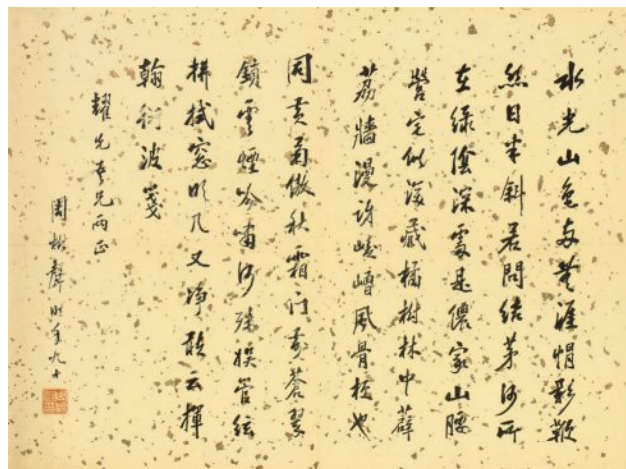 水光山色無涯帽影鞭
絲日半斜若問結茅何所
在綠陰深處是儂家山腰
營宅似深藏橘樹林中薜
荔牆漫訝崚嶒風骨也
同黃菊傲秋霜門蒼翠
鎖雲煙吟嘯何殊娛管絃
拂拭窓明几又淨敢云揮
翰衍波箋
耀先吾兄兩正
周樹聲時年九十